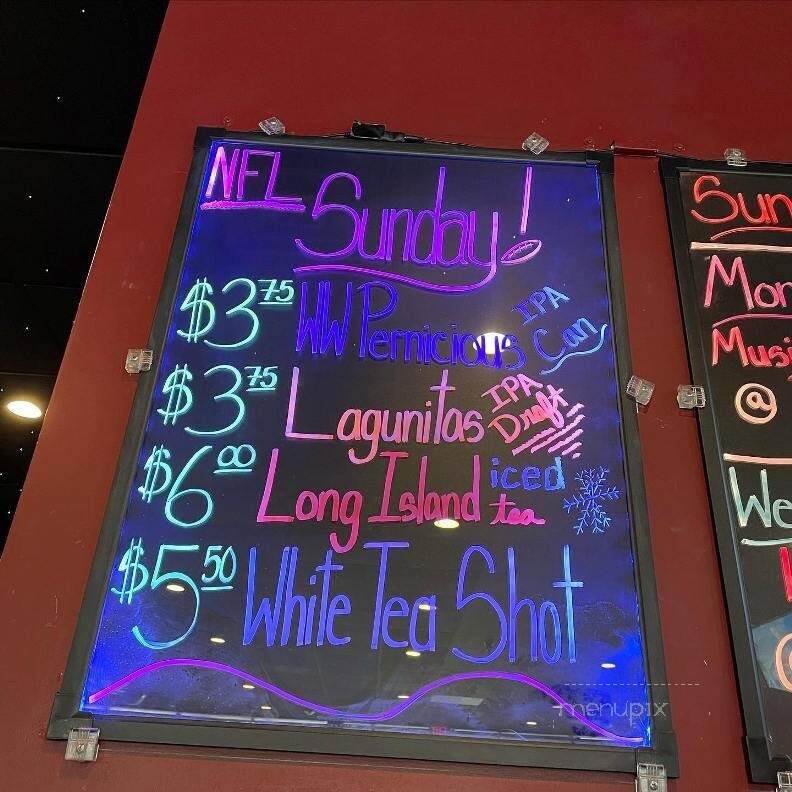 NFL
Sunday!
$3.75 WW Pernicious IPA Can
$3.75 Lagunitas IPA Draft
$6.00 Long Island iced tea
$5.50 White Tea Shot
Sun
Mon
Musi
@
We
menupix